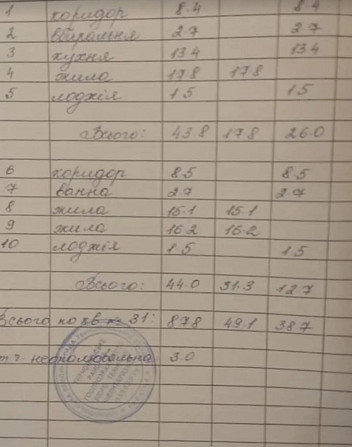 1 коридор 8.4 8.4
2 вбиральня 2.7 2.7
3 кухня 13.4 13.4
4 жила 17.8 17.8
5 лоджія 1.5 1.5
Всього: 43.8 17.8 26.0
6 коридор 8.5 8.5
7 ванна 2.7 2.7
8 жила 15.1 15.1
9 жила 16.2 16.2
10 лоджія 1.5 1.5
Всього: 44.0 31.3 12.7
Всього по кв № 31: 87.8 49.1 38.7
т.ч. неопалювальна 3.0